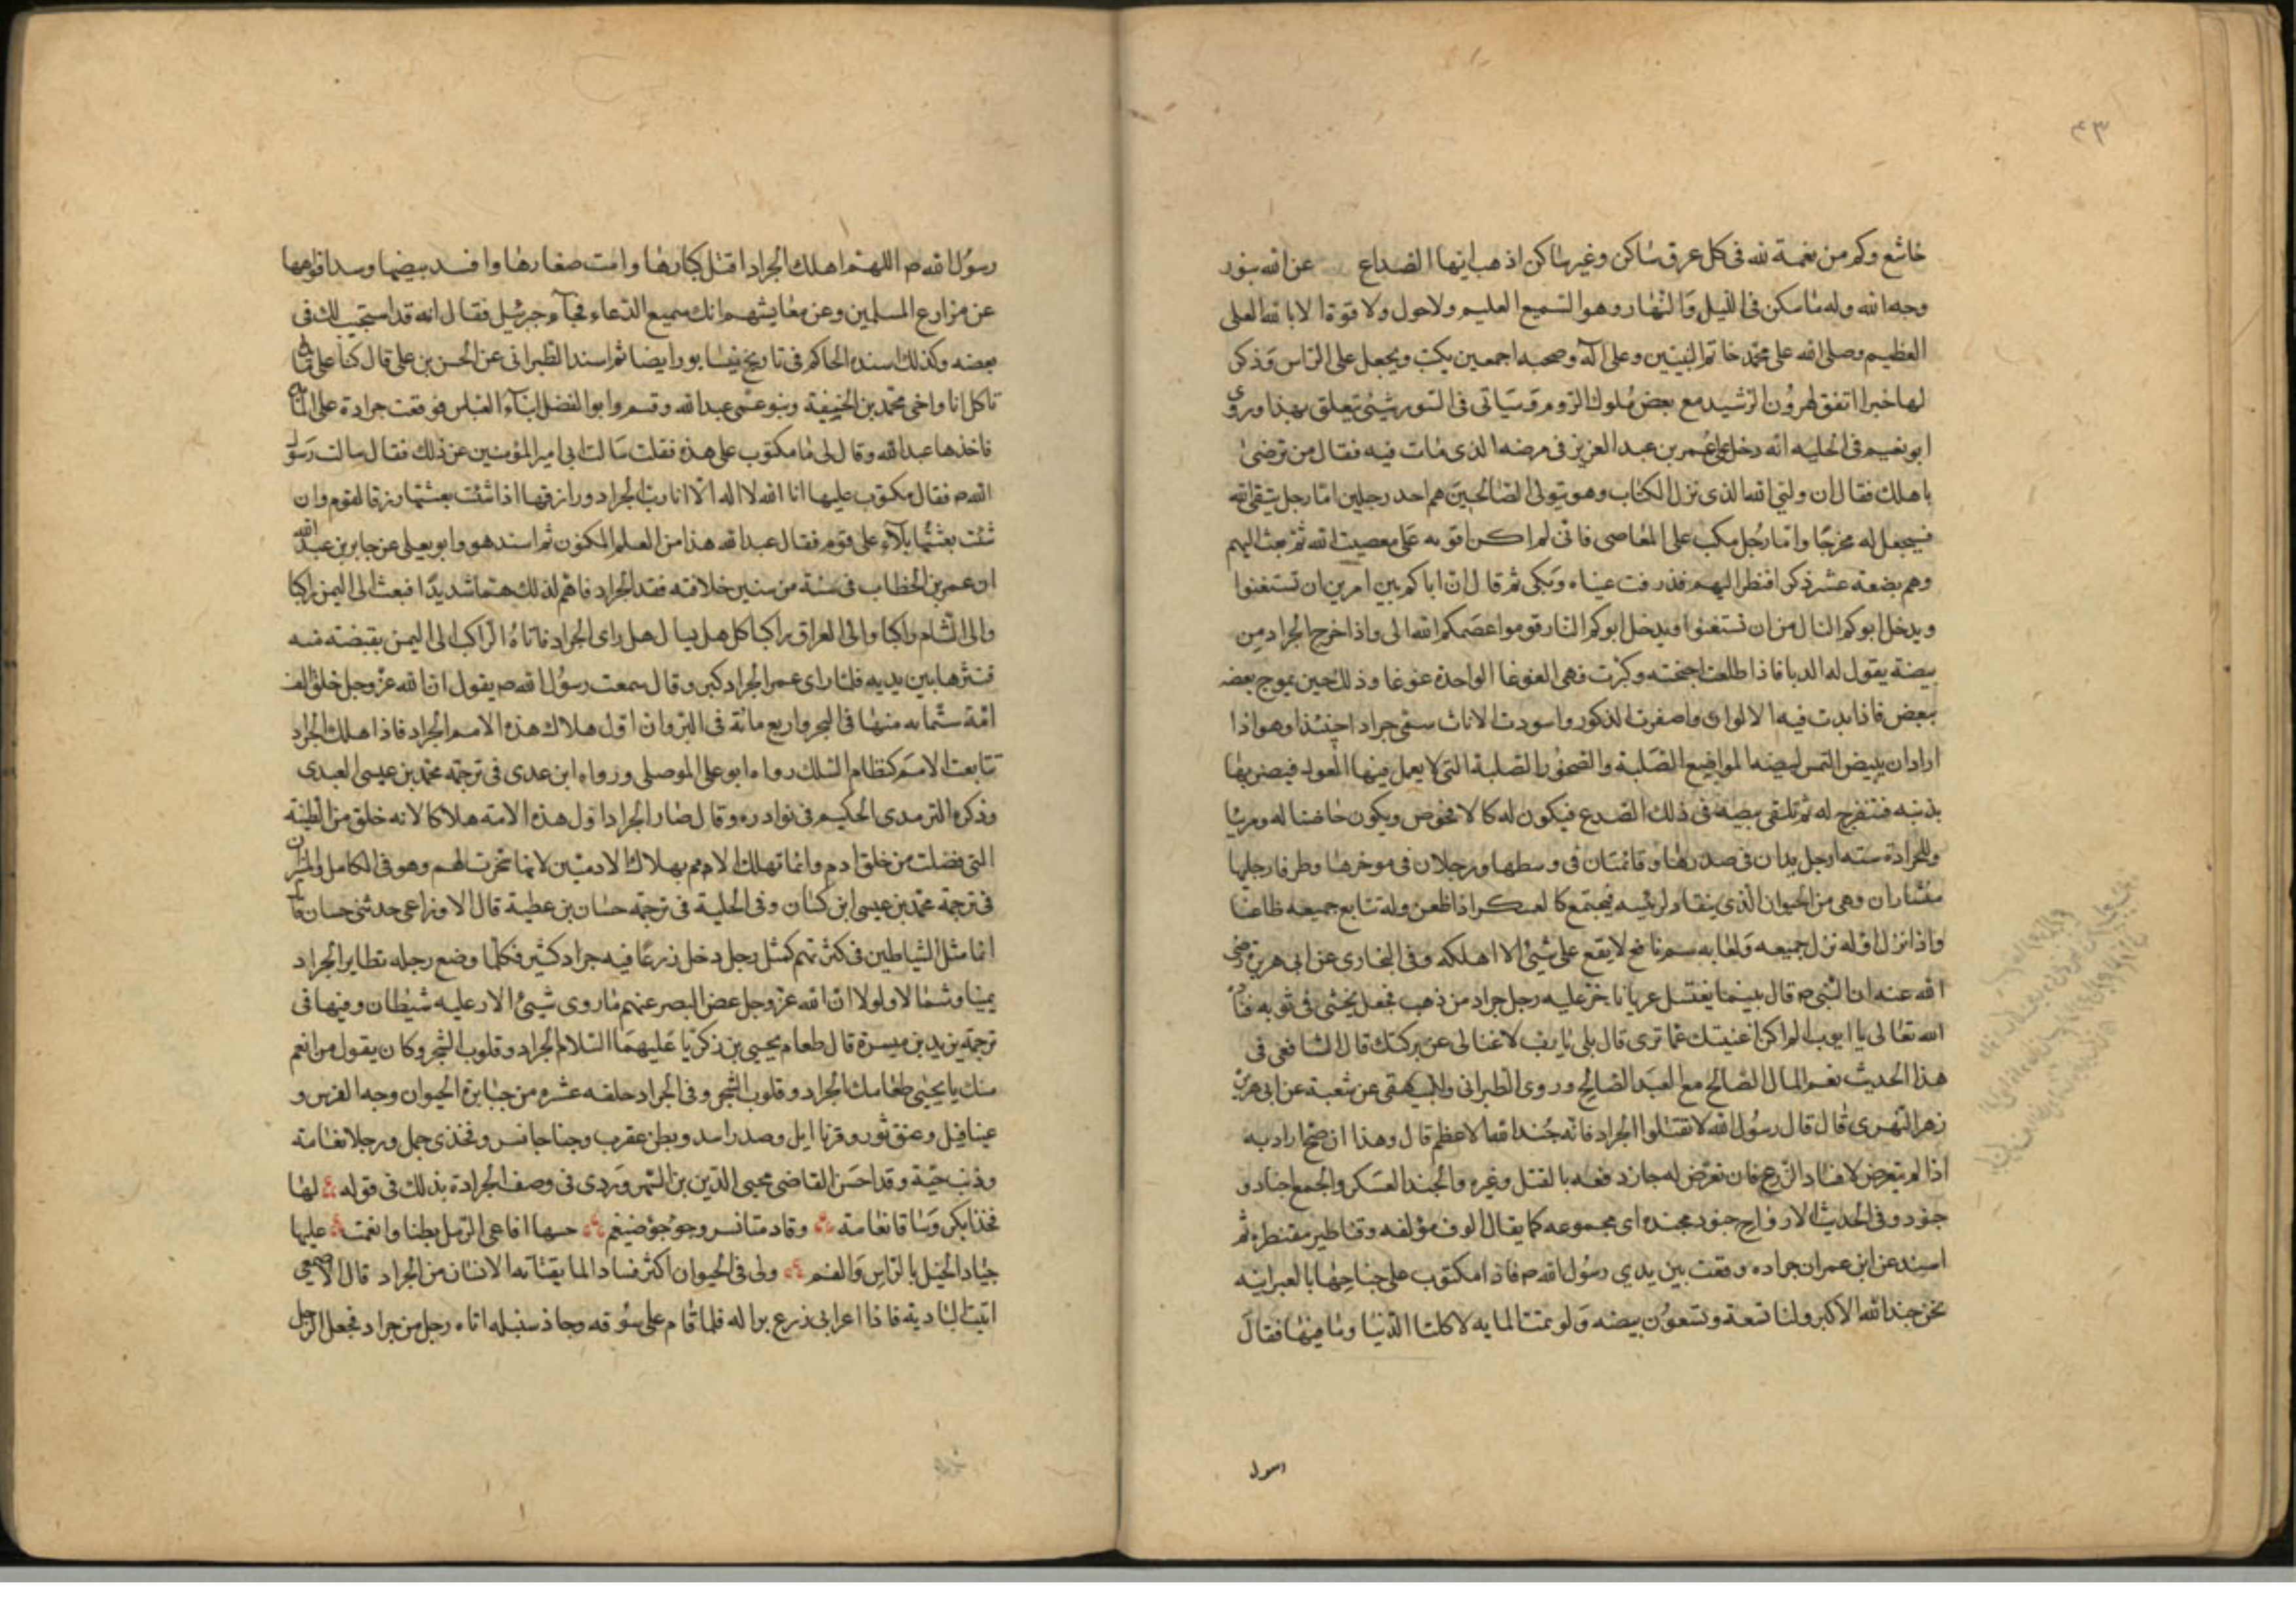 ٤٣
خاشع وكم من نعمة لله فى كل عرق ساكن وغير ساكن اذهب ايها الصداع عن الله بنور
وجه الله وله ما سكن فى الليل والنهار وهو السميع العليم ولا حول ولا قوة الا بالله العلى
العظيم وصلى الله على محمد خاتم النبيين وعلى آله وصحبه اجمعين يكتب ويجعل على الراس وذكر
لها خبرا اتفق لهرون الرشيد مع بعض ملوك الروم وسياتى فى السور شيئ يتعلق بهذا وروى
ابو نعيم فى الحليه انه دخل على عمر بن عبد العزيز فى مرضه الذى مات فيه فقال من ترضى
باهلك فقال ان وليى الله الذى نزل الكتاب وهو يتولى الصالحين هم احد رجلين اما رجل يتقى الله
فيجعل له مخرجا واما رجل مكب على المعاصى فانى لم اكن اقويه على معصيت الله ثم بعث اليهم
وهم بضعة عشر ذكر افنظر اليهم فذرفت عيناه وبكى ثم قال ان اباكم بين امرين ان تستغنوا
ويدخل ابوكم النار او ان تستغنوا ويدخل ابوكم النار قوموا عصمكم الله تعالى واذا خرج الجراد من
بيضة يقول له الدبا فاذا طلعت اجنحته وكبرت فهى الغوغا الواحدة غوغا وذلك حين يموج بعضه
ببعض فاذا بدت فيه الالوان واصفرت الذكور واسودت الاناث سمى جرادا حينئذ وهو اذا
اراد ان يبيض التمس لبيضه المواضيع الصلبة والصخور الصلبة التى لا يعمل فيها المعول فيضربها
بذنبه فتنفرج له ثم تلقى بيضه فى ذلك الصدع فيكون له كالافحوص ويكون حاضنا له ومربيا
وللجرادة سته ارجل يدان فى صدرها وقائمتان فى وسطها ورجلان فى موخرها وطرفا رجليها
منشاران وهى من الحيوان الذى ينقاد لرئيسه فيجتمع كالعسكر اذا ظعن وله تتابع جميعه ظاعنا
واذا نزل اوله نزل جميعه ولعابه سم ناقع لا يقع على شيئ الا اهلكه وفى البخارى عن ابى هريرة رضى
الله عنه ان النبى ص قال بينما يغتسل عريانا خر عليه رجل جراد من ذهب فجعل يحثى فى ثوبه فناد
الله تعالى يا ايوب الم اكن اغنيتك عما ترى قال بلى يا رب لا غنا لى عن بركتك قال الشافعى فى
هذا الحديث نعم المال الصالح مع العبد الصالح وروى الطبرانى والبيهقى عن شعبة عن ابى هريرة
زهر النهرى قال قال رسول الله لا تقتلوا الجراد فانه جند الله الاعظم قال وهذا ان صح اراد به
اذا لم يتعرض لافساد الزرع فان تعرض له جاز دفعه بالقتل وغيره والجند العسكر والجمع اجناد و
جنود وفى الحديث الارواح جنود مجنده اى مجموعه كما يقال الوف مؤلفه وقناطير مقنطره ثم
اسند عن ابن عمر ان جراده وقعت بين يدي رسول الله ص فاذا مكتوب على جناحها بالعبرانيه
نحن جند الله الاكبر ولنا تسعة وتسعون بيضه ولو تمت لنا المايه لاكلنا الدنيا وما فيها فقال
رسول
رسول الله ص اللهم اهلك الجراد اقتل كبارها وامت صغارها وافسد بيضها وسد افواهها
عن مزارع المسلمين وعن معايشهم انك سميع الدعاء فجآء جرئيل فقال انه قد استجيب لك فى
بعضه وكذلك اسنده الحاكم فى تاريخ نيسابور ايضا ثم اسند الطبرانى عن الحسن بن على قال كنا على مائدة
ناكل انا واخى محمد بن الحنيفية وبنو عمى عبد الله وقسم وابو الفضل ابنآء العباس فوقعت جرادة على المائدة
فاخذها عبد الله وقال لى ما مكتوب على هذه فقلت سالت ابى امير المؤمنين عن ذلك فقال سالت رسول
الله ص فقال مكتوب عليها انا الله لا اله الا انا رب الجراد ورازقها اذا شئت بعثتها رزقا لقوم وان
شئت بعثتها بلآء على قوم فقال عبد الله هذا من العلم المكنون ثم اسند هو وابو يعلى عن جابر بن عبد الله
ان عمر بن الخطاب فى سنة من سنين خلافته فقد الجراد فاهم لذلك هما شديدا فبعث الى اليمن راكبا
والى الشام راكبا والى العراق راكبا كل هل يسال هل راى الجراد فاتاه الراكب الى اليمن بقبضة منه
فنثرها بين يديه فلما راى عمر الجراد كبر وقال سمعت رسول الله ص يقول ان الله عز وجل خلق الف
امة ستمايه منها فى البحر واربع مائة فى البر وان اول هلاك هذه الامم الجراد فاذا هلك الجراد
تتابعت الامم كنظام السلك رواه ابو على الموصلى ورواه ابن عدى فى ترجمة محمد بن عيسى العبدى
وذكره الترمدى الحكيم فى نوادره وقال صار الجراد اول هذه الامة هلاكا لانه خلق من الطينة
التى فضلت من خلق ادم وانما تهلك الامم بهلاك الادميين لانها سخرت لهم وهو فى الكامل والميزان
فى ترجمة محمد بن عيسى ابن كسان وفى الحلية فى ترجمة حسان بن عطية قال الاوزاعى حدثنى حسان قال
انما مثل الشياطين فى كثرتهم كمثل رجل دخل زرعا فيه جراد كثير فكلما وضع رجله تطاير الجراد
يمينا وشمالا ولولا ان الله عز وجل غض البصر عنهم ما روى شيئ الا وعليه شيطان وفيها فى
ترجمة يزيد بن ميسرة قال طعام يحيى بن زكريا عليهما السلام الجراد وقلوب الشجر وكان يقول من انعم
منك يا يحيى طعامك الجراد وقلوب الشجر وفى الجراد خلقه عشره من جبابرة الحيوان وجه الفرس و
عينا فيل وعنق ثور وقرنا ايل وصدر اسد وبطن عقرب وجناحا نسر وفخذى جمل ورجلا نعامة
وذنب حية وقد احسن القاضى محيى الدين بن الشهروردى فى وصف الجرادة بذلك فى قوله لها
فخذا بكر وساقا نعامة وقادمتا نسر وجؤجؤ ضيغم حبتها افاعى الرمل بطنا وانعمت عليها
جياد الخيل بالراس والفم ولى فى الحيوان اكثر فسادا لما يقتاته الانسان من الجراد قال الاصمعى
اتيت البادية فاذا اعرابى زرع برا له فلما قام على سوقه وجاذ سنبله اتاه رجل من جراد فجعل الرجل